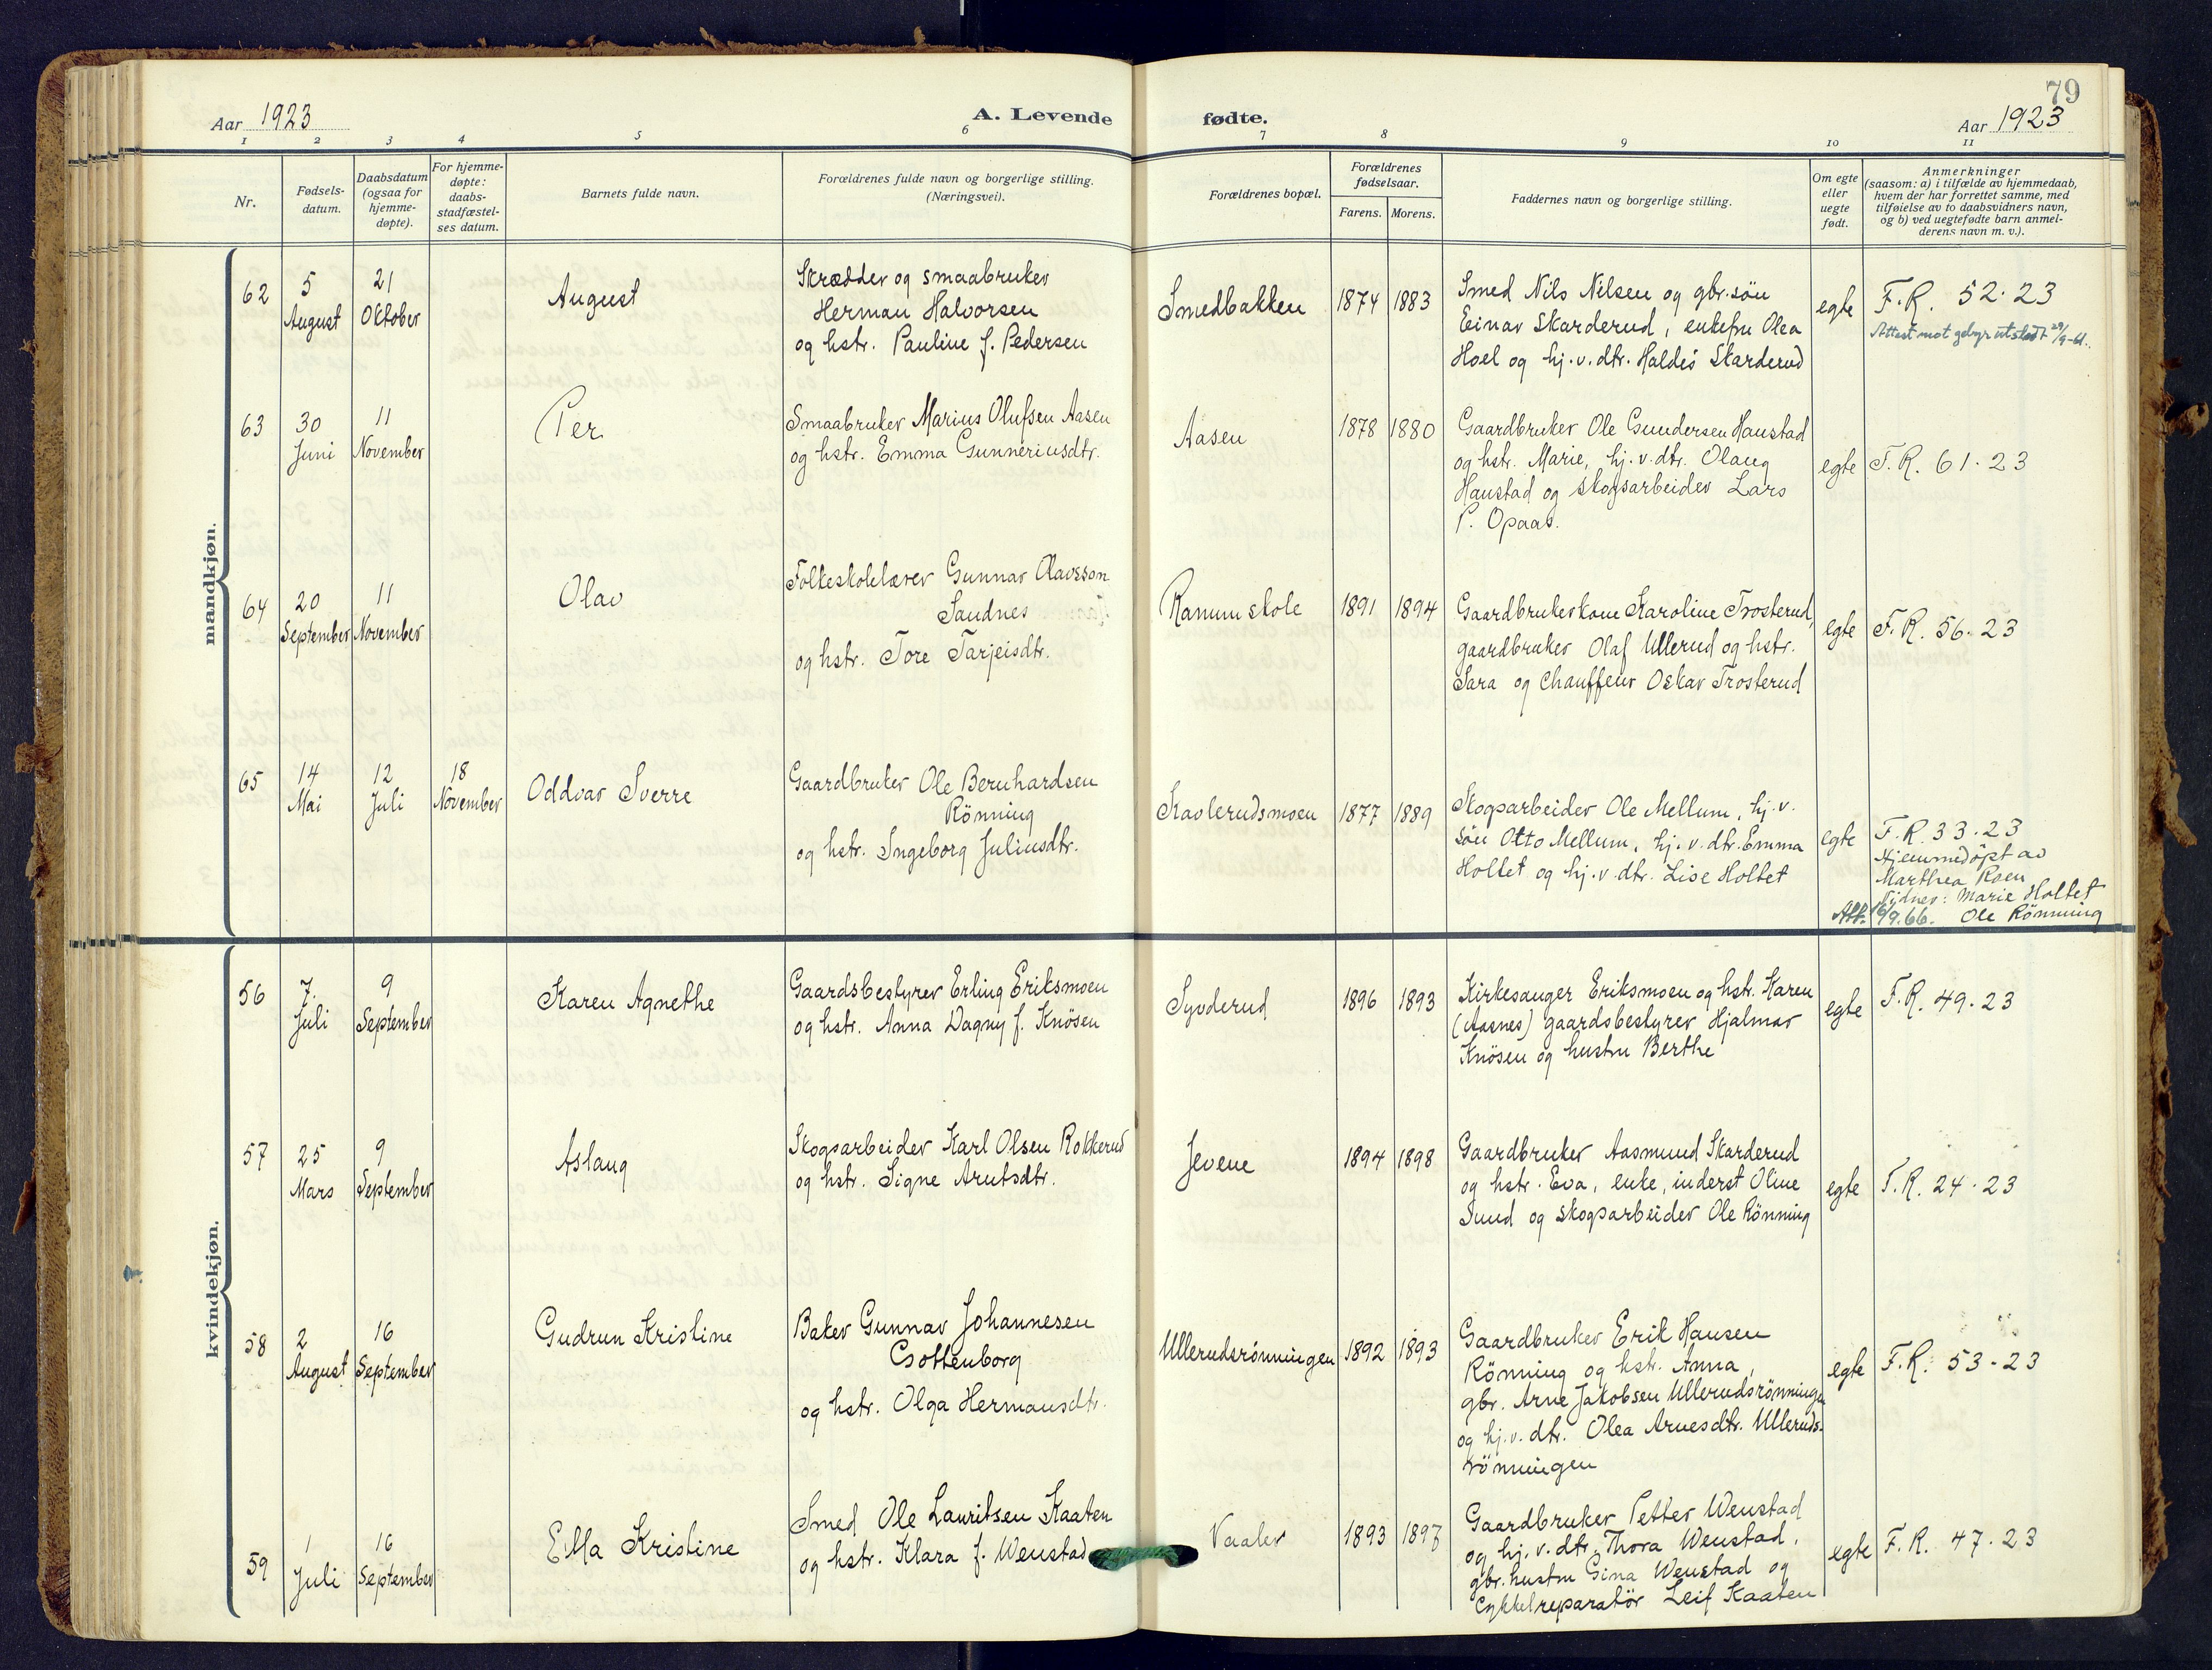 79
Aar 1923
A. Levende fødte.
Aar 1923
1 2 3 4 5 6 7 8 9 10 11
Nr.
Fødsels-
datum.
Daabsdatum
(ogsaa for
hjemme-
døpte).
For hjemme-
døpte:
daabs-
stadfæstel-
ses datum.
Barnets fulde navn.
Forældrenes fulde navn og borgerlige stilling.
(Næringsvei).
Forældrenes bopæl.
Forældrenes
fødselsaar.
Farens. Morens.
Faddernes navn og borgerlige stilling.
Om egte
eller
uegte
født.
Anmerkninger
(saasom: a) i tilfælde av hjemmedaab,
hvem der har forrettet samme, med
tilføielse av to daabsvidners navn,
og b) ved uegtefødte barn anmel-
derens navn m. v.).
mandkjøn.
62
5
August
21
Oktober
August
Skrædder og smaabruker
Herman Halvorsen
og hstr. Pauline f. Pedersen
Smedbakken
1874 1883
Smed Nils Nilsen og gbr.søn
Einar Skarderud, enkefru Olea
Hoel og hj.v.dtr. Haldis Skarderud
egte
F.R. 52·23
Attest mot gebyr utstedt 29/9-61.
63
30
Juni
11
November
Per
Smaabruker Marius Olufsen Aasen
og hstr. Emma Gunneriusdtr.
Aasen
1878 1880
Gaardbruker Ole Gundersen Haustad
og hstr. Marie, hj.v.dtr. Olaug
Haustad og skogsarbeider Lars
P. Opaas.
egte
F.R. 61·23
64
20
September
11
November
Olav
Folkeskolelærer Gunnar Olavsson
Sandnes
og hstr. Tore Tarjeisdtr.
Ranum skole
1891 1894
Gaardbrukerkone Karoline Trosterud,
gaardbruker Olaf Ullerud og hstr.
Sara og Chauffeur Oskar Trosterud
egte
F.R. 56·23
65
14
Mai
12
Juli
18
November
Oddvar Sverre
Gaardbruker Ole Bernhardsen
Rönning
og hstr. Ingeborg Juliusdtr.
Kavlerudsmoen
1877 1889
Skogsarbeider Ole Mellum, hj.v.
søn Otto Mellum, hj.v.dtr. Emma
Holtet og hj.v.dtr. Lise Holtet
egte
F.R. 33·23
Hjemmedöpt av
Marthea Roen
Vidner: Marie Holtet
Ole Rönning
Att. 16/9.66.
kvindekjøn.
56
7.
Juli
9
September
Karen Agnethe
Gaardsbestyrer Erling Eriksmoen
og hstr. Anna Dagny f. Knösen
Syvderud
1896 1893
Kirkesanger Eriksmoen og hstr. Karen
(Aasnes) gaardsbestyrer Hjalmar
Knösen og hustru Berthe
egte
F.R. 49·23
57
25
Mars
9
September
Aslaug
Skogsarbeider Karl Olsen Rokkerud
og hstr. Signe Arntsdtr.
Jevene
1894 1898
Gaardbruker Aasmund Skarderud
og hstr. Eva, enke, inderst Oline
Sund og skogsarbeider Ole Rönning
egte
F.R. 24·23
58
2
August
16
September
Gudrun Kristine
Baker Gunnar Johannesen
Gottenborg
og hstr. Olga Hermansdtr.
Ullerudsrönningen
1892 1893
Gaardbruker Erik Hansen
Rönning og hstr. Anna,
gbr. Arne Jakobsen Ullerudsrönningen
og hj.v.dtr. Olea Arnesdtr. Ulleruds-
rönningen
egte
F.R. 53-23
59
1
Juli
16
September
Ella Kristine
Smed Ole Lauritsen Kaaten
og hstr. Klara f. Wenstad
Vaaler
1893 1897
Gaardbruker Petter Wenstad
og hj.v.dtr. Thora Wenstad,
gbr.hustru Gina Wenstad og
Cykkelreparatör Leif Kaaten
egte
F.R. 47·23